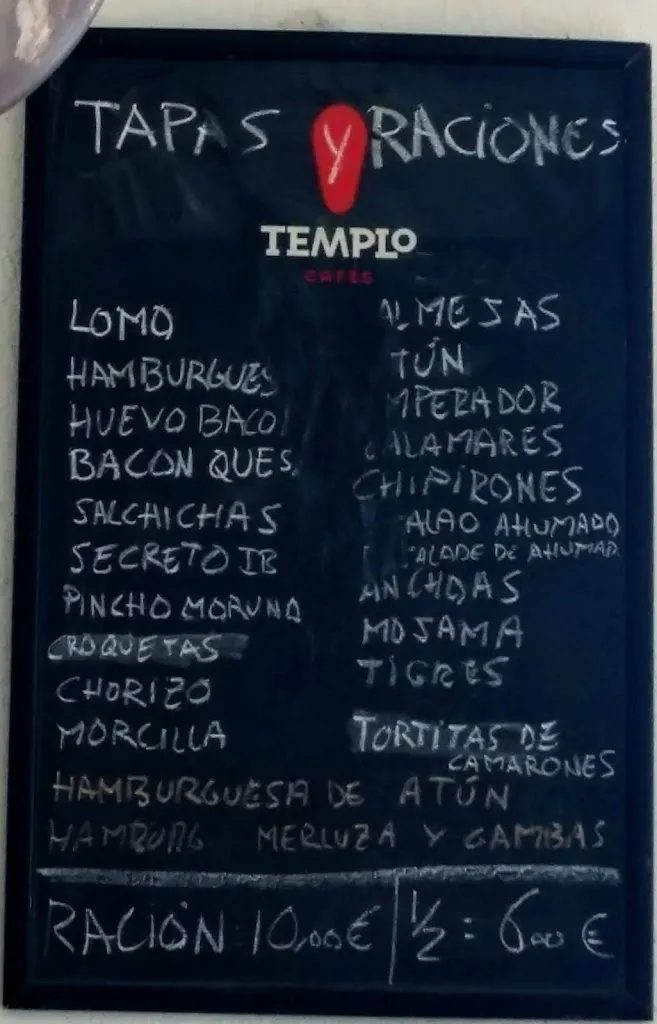 TAPAS Y RACIONES
TEMPLO
CAFES
LOMO
HAMBURGUES
HUEVO BACO
BACON QUES
SALCHICHAS
SECRETO IB
PINCHO MORUNO
CROQUETAS
CHORIZO
MORCILLA
ALMEJAS
TÚN
MPERADOR
CALAMARES
CHIPIRONES
ALAO AHUMADO
ALADE DE AHUMAD
ANCHOAS
MOJAMA
TIGRES
TORTITAS DE
CAMARONES
HAMBURGUESA DE ATÚN
HAMBURG MERLUZA Y GAMBAS
RACIÓN 10,00€ | 1/2 = 6,00 €